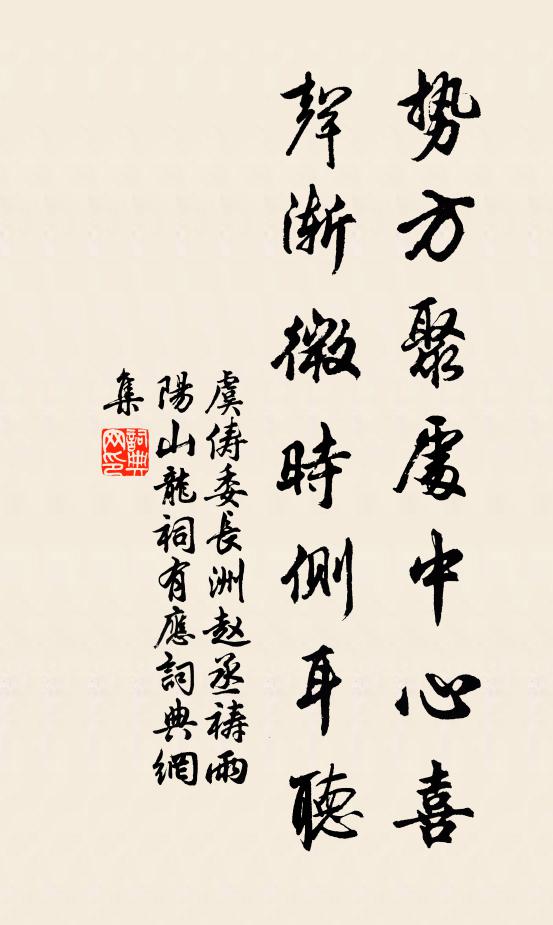 势方聚處中心喜
聲漸微時側耳聽
虞儔委長洲赵丞禱雨
陽山龍祠有應詞典網
集
詞典
网印